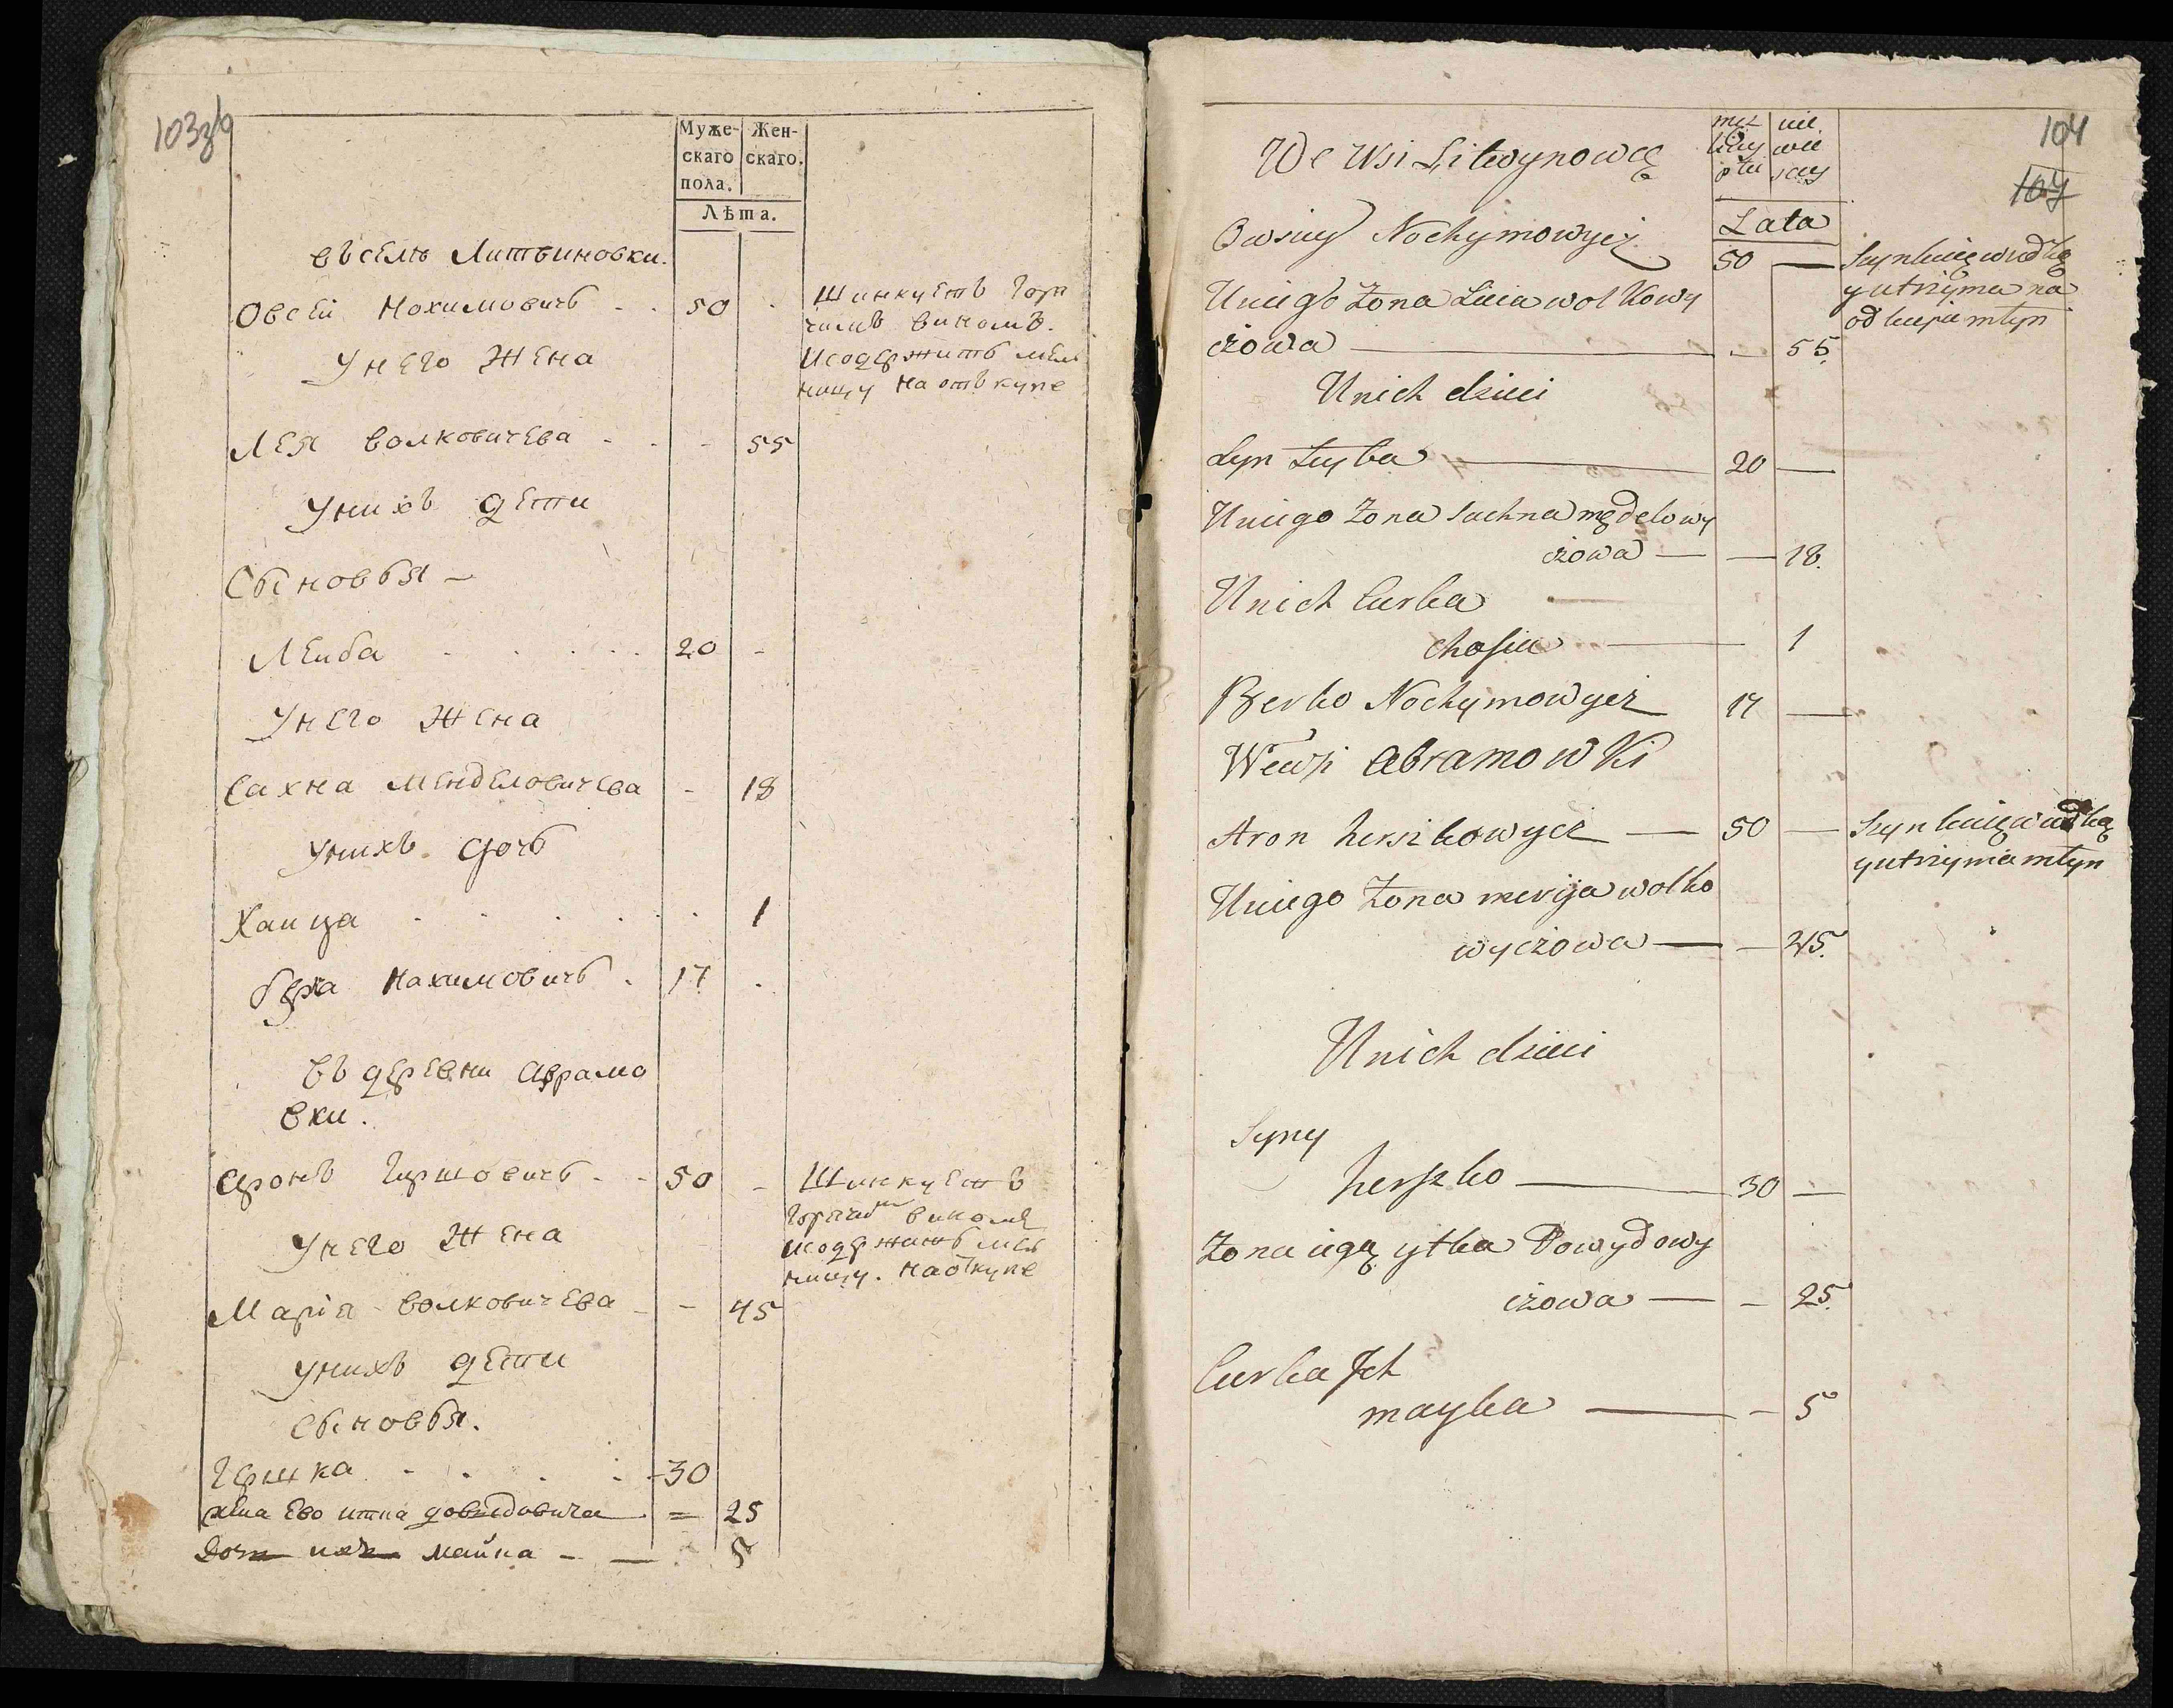 103зв
Муже-
скаго
пола.
Жен-
скаго.
Лѣта.
въ селѣ Литвиновки.
Овсей Нохимовичъ - - 50 - Шинкуетъ горя
чимъ виномъ.
У него жена
И содержитъ мель
ницу на отъкупе
Лея Волковичева - - - 55
У нихъ дети
Сыновья -
Лейба - - - - 20 -
У него жена
Сахна Менделовичева - 18
У нихъ дочь
Хаица - - - - - 1
Берка Нахимовичъ - 17 -
въ деревни Абрамо
вки.
Аронъ Гиршовичъ - - 50 - Шинкуетъ
горячимъ виномъ
У него жена
и содержитъ мел
ницу. на откупе
Марія Волковичева - - 45
У нихъ дети
Сыновья.
Гершка - - - - 30
жена ево итка довыдовича = 25
Дочь ихъ майка - — 5
104
107
We Wsi Litwynowcę
męz
kiey
płci
nie
wie
sciey
Lata
Owsiey Nochymowycz 50 — Szynkuię wudkę
y utrzyma na
od kupu młyn
Uniego Zona Leia wolkowy
czowa — - 55.
Unich dzieci
Syn Leyba — 20 —
Uniego Zona Sachna mędelowy
czowa — — 18.
Unich Curka
chasia — 1
Berko Nochymowycz 17 —
We wsi Abramowki
Aron herszkowycz — 50 — Szynkuię wudkę
y utrzyma młyn
Uniego Zona meryja wolko
wyczowa — — 45.
Unich dzieci
Syny
herszko — 30 —
Zona iegą ytka Dowydowy
czowa — - 25.
Curka Jch
mayka — - 5